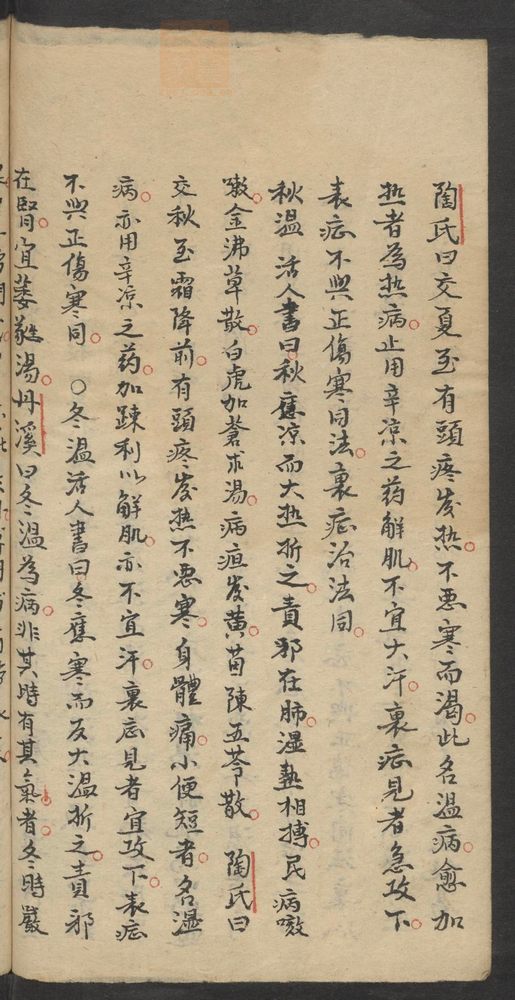 陶氏曰交夏至有頭疼发热不悪寒而渴此名温病愈加
热者為热病止用辛凉之药解肌不宜大汗裏症見者急攻下
表症不與正傷寒同法裏症治法同
秋温 活人書曰秋應凉而大热折之責邪在肺湿熱相搏民病咳
嗽金沸草散白虎加蒼术湯病疸发黄茵陳五苓散 陶氏曰
交秋至霜降前有頭疼发热不悪寒身體痛小便短者名湿
病亦用辛凉之药加踈利以解肌亦不宜汗裏症見者宜攻下表症
不與正傷寒同 ○冬温活人書曰冬應寒而反大温折之責邪
在腎宜萎蕤湯丹溪曰冬温為病非其時有其氣者冬時嚴